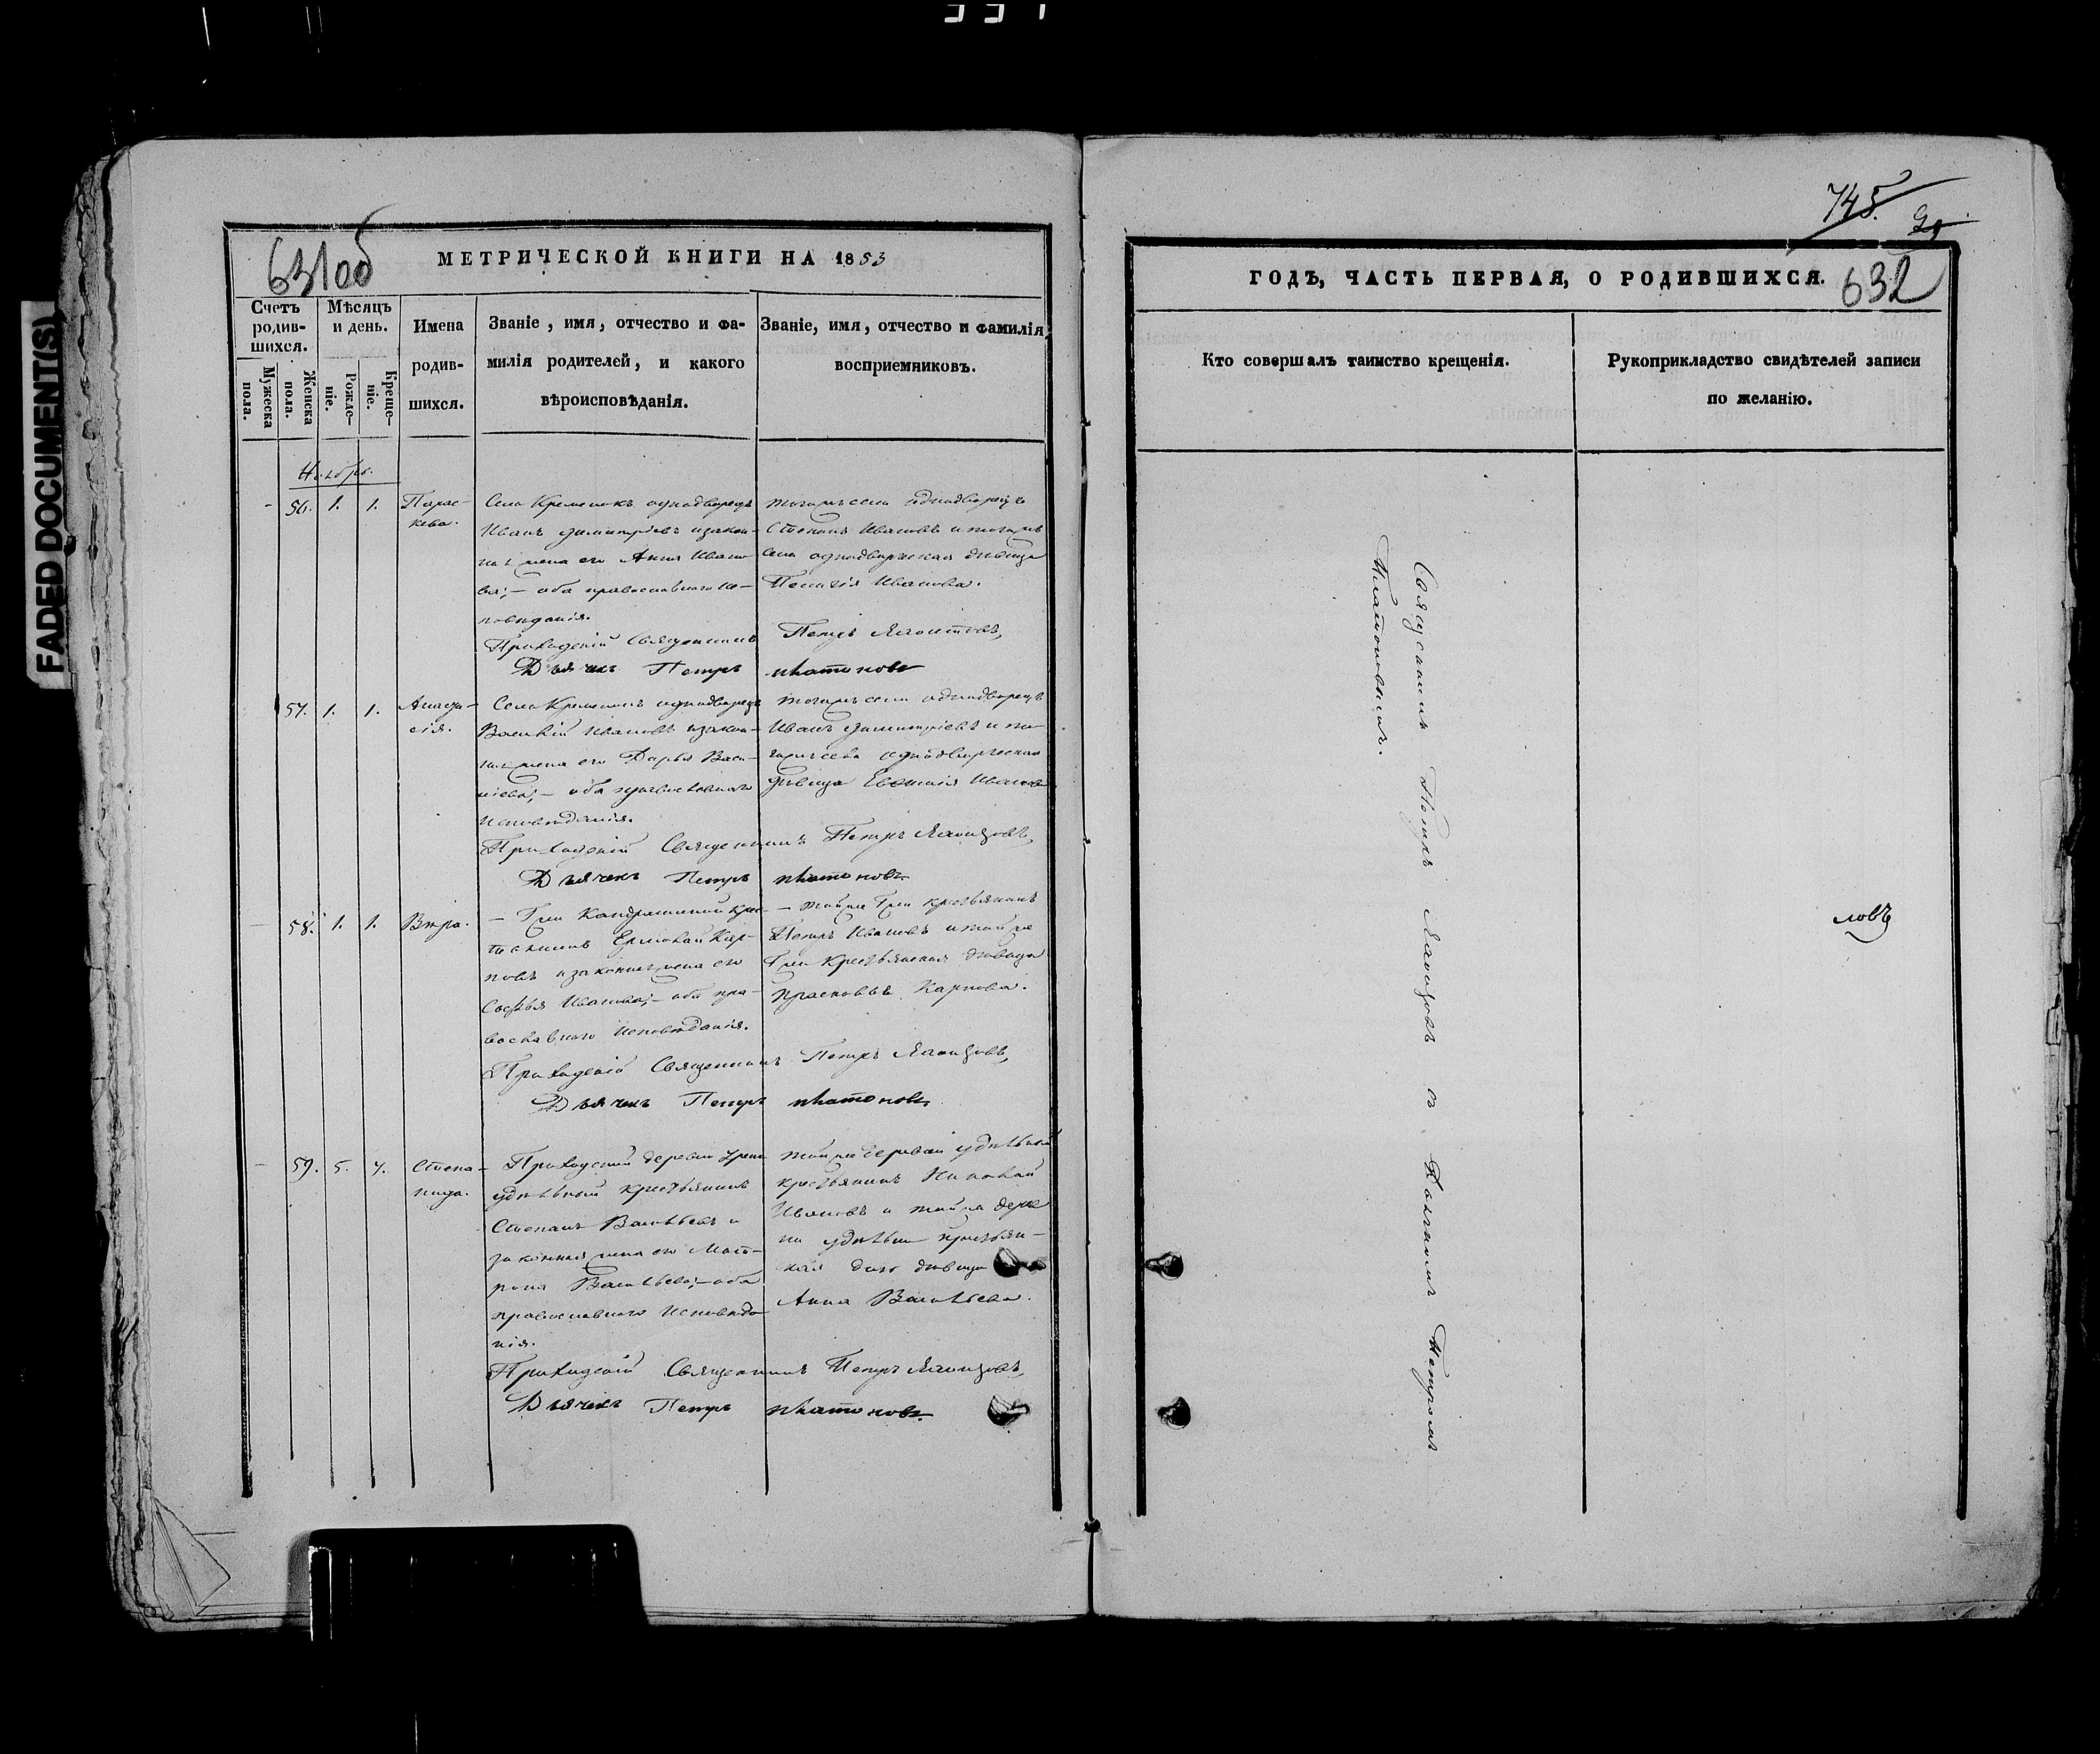 FADED DOCUMENT(S)
631об
МЕТРИЧЕСКОЙ КНИГИ НА 1853
Счетъ родив-шихся.
Мужеска пола.
Женска пола.
Мѣсяцъ и день.
Рожде-ніе.
Креще-ніе.
Имена
родив-
шихся.
Званіе, имя, отчество и фа-
милія родителей, и какого
вѣроисповѣданія.
Званіе, имя, отчество и фамилія
восприемниковъ.
Ноябрь.
- 56. 1. 1. Парас-
кева.
Села Кременокъ однодворецъ
Иванъ Димитріевъ и закон-
ная жена его Анна Ивано-
ва; - оба православнаго ис-
повѣданія.
тогожъ села однодворецъ
Степанъ Ивановъ и тогожъ
села однодворческая дѣвица
Пелагія Иванова.
Приходскій Священникъ Петръ
Дьячекъ Петръ Платоновъ
57. 1. 1. Анаста-
сія.
Села Кременокъ однодворецъ
Василій Ивановъ и закон-
ная жена его Дарья Васи-
ліева; - оба православнаго
исповѣданія.
тогожъ села однодворецъ
Иванъ Димитріевъ и то-
гожъ села однодворческая
дѣвица Евфимія Иванова
Приходскій Священникъ Петръ
Дьячекъ Петръ Платоновъ
- 58. 1. 1. Вѣра.
Карповъ и законная жена его
Софья Иванова; - оба пра-
вославнаго исповѣданія.
- тойже крестьянинъ
Петръ Ивановъ и тойже
крестьянская дѣвица
Прасковья Карпова.
Приходскій Священникъ Петръ
Дьячекъ Петръ Платоновъ
- 59. 5. 7. Степа-
нида.
Приходской деревни
удѣльный крестьянинъ
Степанъ Васильевъ и
законная жена его Мат-
рона Васильева; - оба
православнаго исповѣда-
нія.
тойже деревни удѣльный
крестьянинъ Николай
Ивановъ и тойже дерев-
ни удѣльная крестьян-
ская дѣвица
Анна Васильева.
Приходскій Священникъ Петръ
Дьячекъ Петръ Платоновъ
745.
632
ГОДЪ, ЧАСТЬ ПЕРВАЯ, О РОДИВШИХСЯ.
Кто совершалъ таинство крещенія.
Рукоприкладство свидѣтелей записи
по желанію.
Священникъ Петръ с Дьячкомъ Петромъ
Платоновымъ.
ловъ